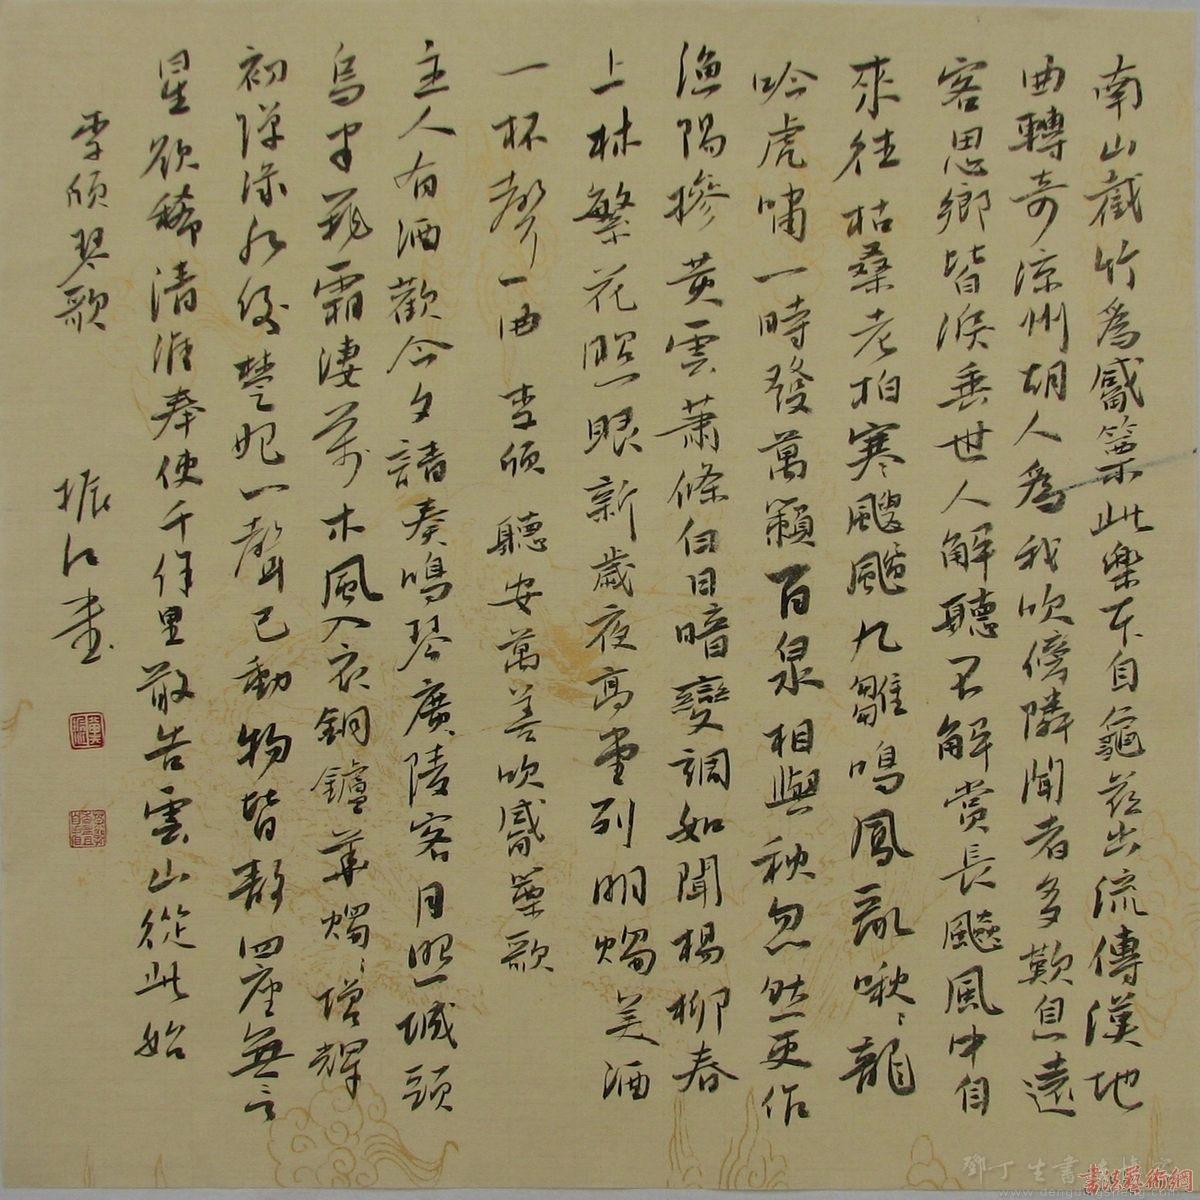 南山截竹為觱篥此樂本自龜茲出流傳漢地
曲轉奇涼州胡人為我吹傍隣聞者多歎息遠
客思鄉皆淚垂世人解聽不解賞長飈風中自
來往枯桑老柏寒颼飀九雛鳴鳳亂啾〻龍
吟虎嘯一時發萬籟百泉相與秋忽然更作
漁陽摻黃雲蕭條白日暗變調如聞楊柳春
上林繁花照眼新歲夜高堂列明燭美酒
一杯聲一曲 李頎 聽安萬善吹觱篥歌
主人有酒歡今夕請奏鳴琴廣陵客月照城頭
烏半飛霜淒萬木風入衣銅鑪華燭〻增輝
初彈淥水後楚妃一聲已動物皆靜四座無言
星欲稀清淮奉使千餘里敢告雲山從此始
李頎琴歌
振江書
書法藝術網